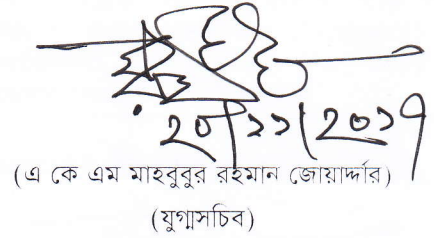 ২০/১১/২০১৭
(এ কে এম মাহবুবুর রহমান জোয়ার্দ্দার)
(যুগ্মসচিব)